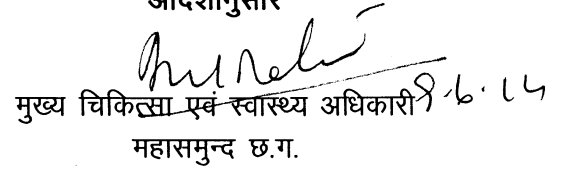 आदेशानुसार
मुख्य चिकित्सा एवं स्वास्थ्य अधिकारी
महासमुन्द छ.ग.